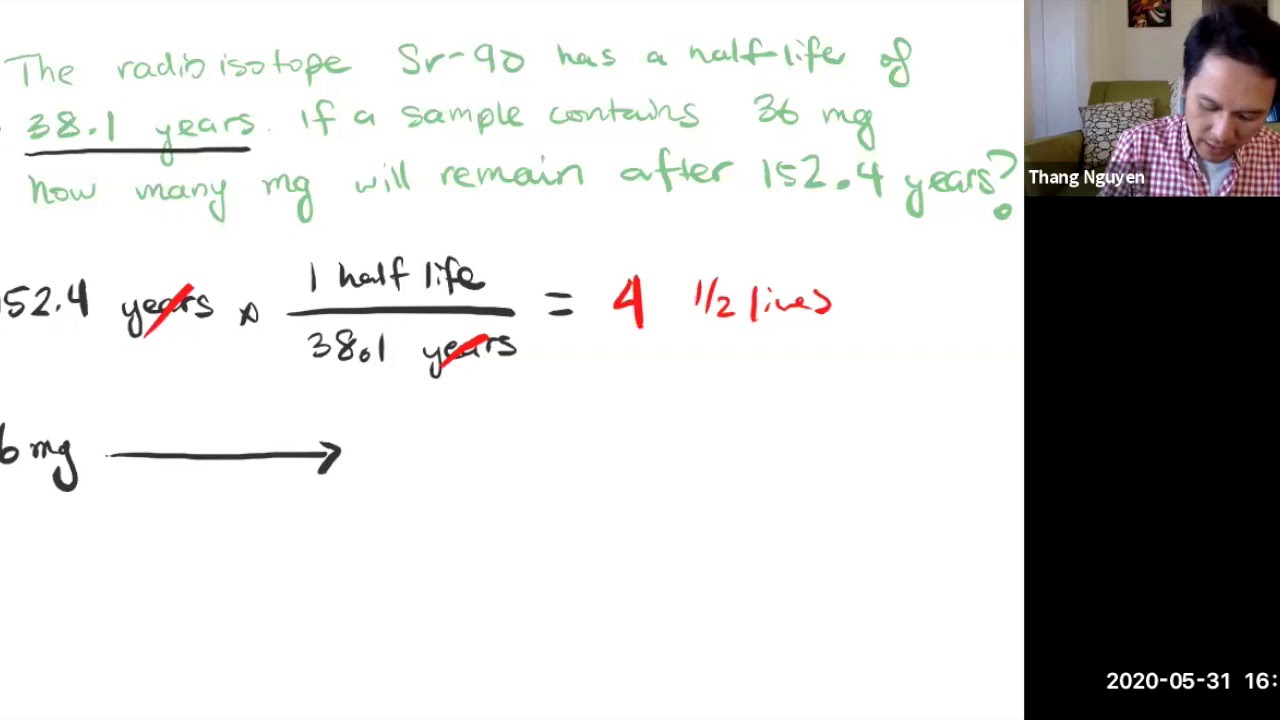 The radioisotope Sr-90 has a half-life of
38.1 years. If a sample contains 36 mg
how many mg will remain after 152.4 years?
Thang Nguyen
152.4 years x 1 half life = 4 1/2 lives
38.1 years
6 mg
2020-05-31 16: